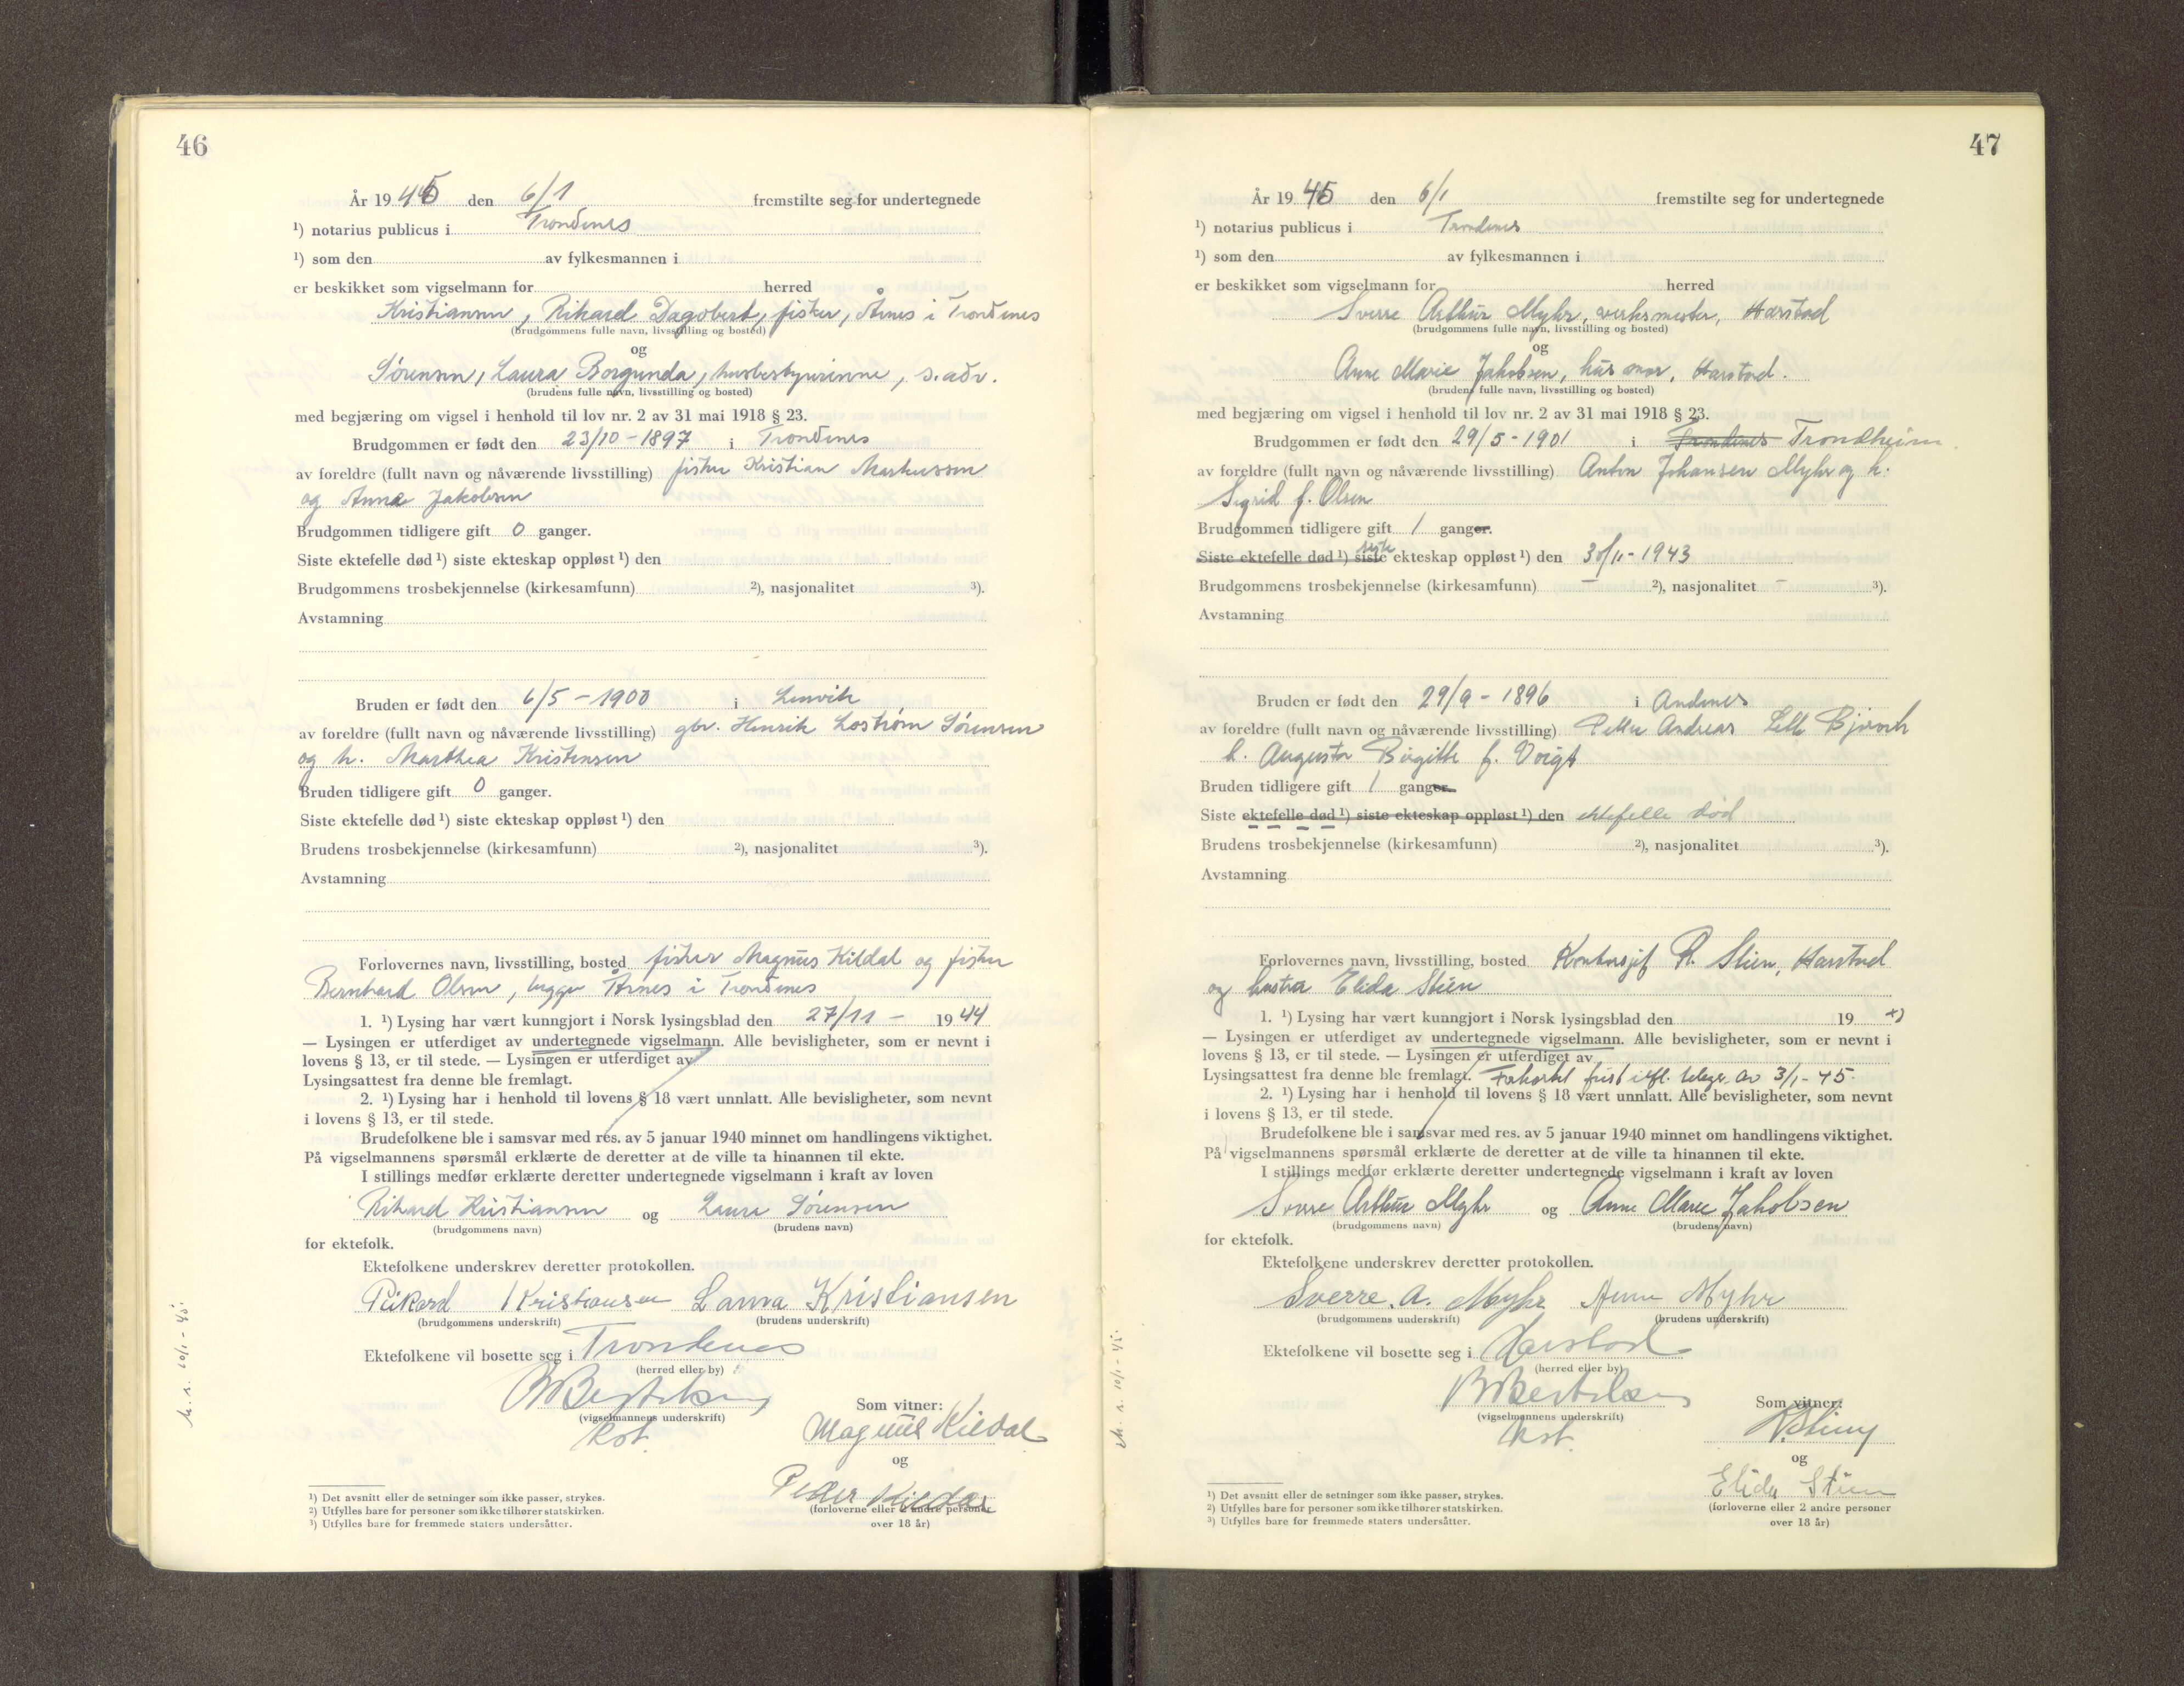 46
År 1945 den 6/1 fremstilte seg for undertegnede
¹) notarius publicus i Trondenes
¹) som den av fylkesmannen i
er beskikket som vigselmann for herred
Kristiansen, Rikard Dagobert, fisker, Årnes i Trondenes
(brudgommens fulle navn, livsstilling og bosted)
og
Sørensen, Laura Borgunda, husbestyrerinne, s. adr.
(brudens fulle navn, livsstilling og bosted)
med begjæring om vigsel i henhold til lov nr. 2 av 31 mai 1918 § 23.
Brudgommen er født den 23/10-1897 i Trondenes
av foreldre (fullt navn og nåværende livsstilling) fisker Kristian Markussen
og Anna Jakobsen
Brudgommen tidligere gift 0 ganger.
Siste ektefelle død ¹) siste ekteskap oppløst ¹) den
Brudgommens trosbekjennelse (kirkesamfunn) ²), nasjonalitet ³).
Avstamning
Bruden er født den 6/5-1900 i Lenvik
av foreldre (fullt navn og nåværende livsstilling) gbr. Henrik Sørensen
og h. Marthea Kristensen
Bruden tidligere gift 0 ganger.
Siste ektefelle død ¹) siste ekteskap oppløst ¹) den
Brudens trosbekjennelse (kirkesamfunn) ²), nasjonalitet ³).
Avstamning
Forlovernes navn, livsstilling, bosted fisker Magnus Kildal og fisker
Bernhard Olsen, begge Årnes i Trondenes
1. ¹) Lysing har vært kunngjort i Norsk lysingsblad den 27/11 - 1944
— Lysingen er utferdiget av undertegnede vigselmann. Alle bevisligheter, som er nevnt i
lovens § 13, er til stede. — Lysingen er utferdiget av
Lysingsattest fra denne ble fremlagt.
2. ¹) Lysing har i henhold til lovens § 18 vært unnlatt. Alle bevisligheter, som nevnt
i lovens § 13, er til stede.
Brudefolkene ble i samsvar med res. av 5 januar 1940 minnet om handlingens viktighet.
På vigselmannens spørsmål erklærte de deretter at de ville ta hinannen til ekte.
I stillings medfør erklærte deretter undertegnede vigselmann i kraft av loven
Rikard Kristiansen og Laura Sørensen
(brudgommens navn) (brudens navn)
for ektefolk.
Ektefolkene underskrev deretter protokollen.
Rikard Kristiansen Laura Kristiansen
(brudgommens underskrift) (brudens underskrift)
Ektefolkene vil bosette seg i Trondenes
(herred eller by)
Bertelsen
(vigselmannens underskrift)
Kst.
Som vitner:
Magnus Kildal
og
Peder Kildal
(forloverne eller 2 andre personer
over 18 år)
¹) Det avsnitt eller de setninger som ikke passer, strykes.
²) Utfylles bare for personer som ikke tilhører statskirken.
³) Utfylles bare for fremmede staters undersåtter.
10/1 - 45.
47
År 1945 den 6/1 fremstilte seg for undertegnede
¹) notarius publicus i Trondenes
¹) som den av fylkesmannen i
er beskikket som vigselmann for herred
Sverre Arthur Myhr, verksmester, Harstad
(brudgommens fulle navn, livsstilling og bosted)
og
Anne Marie Jakobsen, husmor, Harstad.
(brudens fulle navn, livsstilling og bosted)
med begjæring om vigsel i henhold til lov nr. 2 av 31 mai 1918 § 23.
Brudgommen er født den 29/5-1901 i Trondenes Trondheim
av foreldre (fullt navn og nåværende livsstilling) Anton Johansen Myhr og h.
Sigrid f. Olsen
Brudgommen tidligere gift 1 ganger.
Siste ektefelle død ¹) siste ekteskap oppløst ¹) den 30/11-1943
Brudgommens trosbekjennelse (kirkesamfunn) - ²), nasjonalitet - ³).
Avstamning
Bruden er født den 29/9-1896 i Andenes
av foreldre (fullt navn og nåværende livsstilling) Petter Andreas
h. Augusta Birgitte f. Voigt
Bruden tidligere gift 1 ganger.
Siste ektefelle død ¹) siste ekteskap oppløst ¹) den ektefelle død
Brudens trosbekjennelse (kirkesamfunn) ²), nasjonalitet ³).
Avstamning
Forlovernes navn, livsstilling, bosted Kontorsjef R. Stien, Harstad
og hustru Elida Stien
1. ¹) Lysing har vært kunngjort i Norsk lysingsblad den 19 x)
— Lysingen er utferdiget av undertegnede vigselmann. Alle bevisligheter, som er nevnt i
lovens § 13, er til stede. — Lysingen er utferdiget av
Lysingsattest fra denne ble fremlagt. Forkortet frist ifl. telegr. av 3/1-45.
2. ¹) Lysing har i henhold til lovens § 18 vært unnlatt. Alle bevisligheter, som nevnt
i lovens § 13, er til stede.
Brudefolkene ble i samsvar med res. av 5 januar 1940 minnet om handlingens viktighet.
På vigselmannens spørsmål erklærte de deretter at de ville ta hinannen til ekte.
I stillings medfør erklærte deretter undertegnede vigselmann i kraft av loven
Sverre Arthur Myhr og Anne Marie Jakobsen
(brudgommens navn) (brudens navn)
for ektefolk.
Ektefolkene underskrev deretter protokollen.
Sverre. A. Myhr Anne Myhr
(brudgommens underskrift) (brudens underskrift)
Ektefolkene vil bosette seg i Harstad
(herred eller by)
Bertelsen
(vigselmannens underskrift)
Kst.
Som vitner:
R. Stien
og
Elida Stien
(forloverne eller 2 andre personer
over 18 år)
¹) Det avsnitt eller de setninger som ikke passer, strykes.
²) Utfylles bare for personer som ikke tilhører statskirken.
³) Utfylles bare for fremmede staters undersåtter.
10/1 - 45.